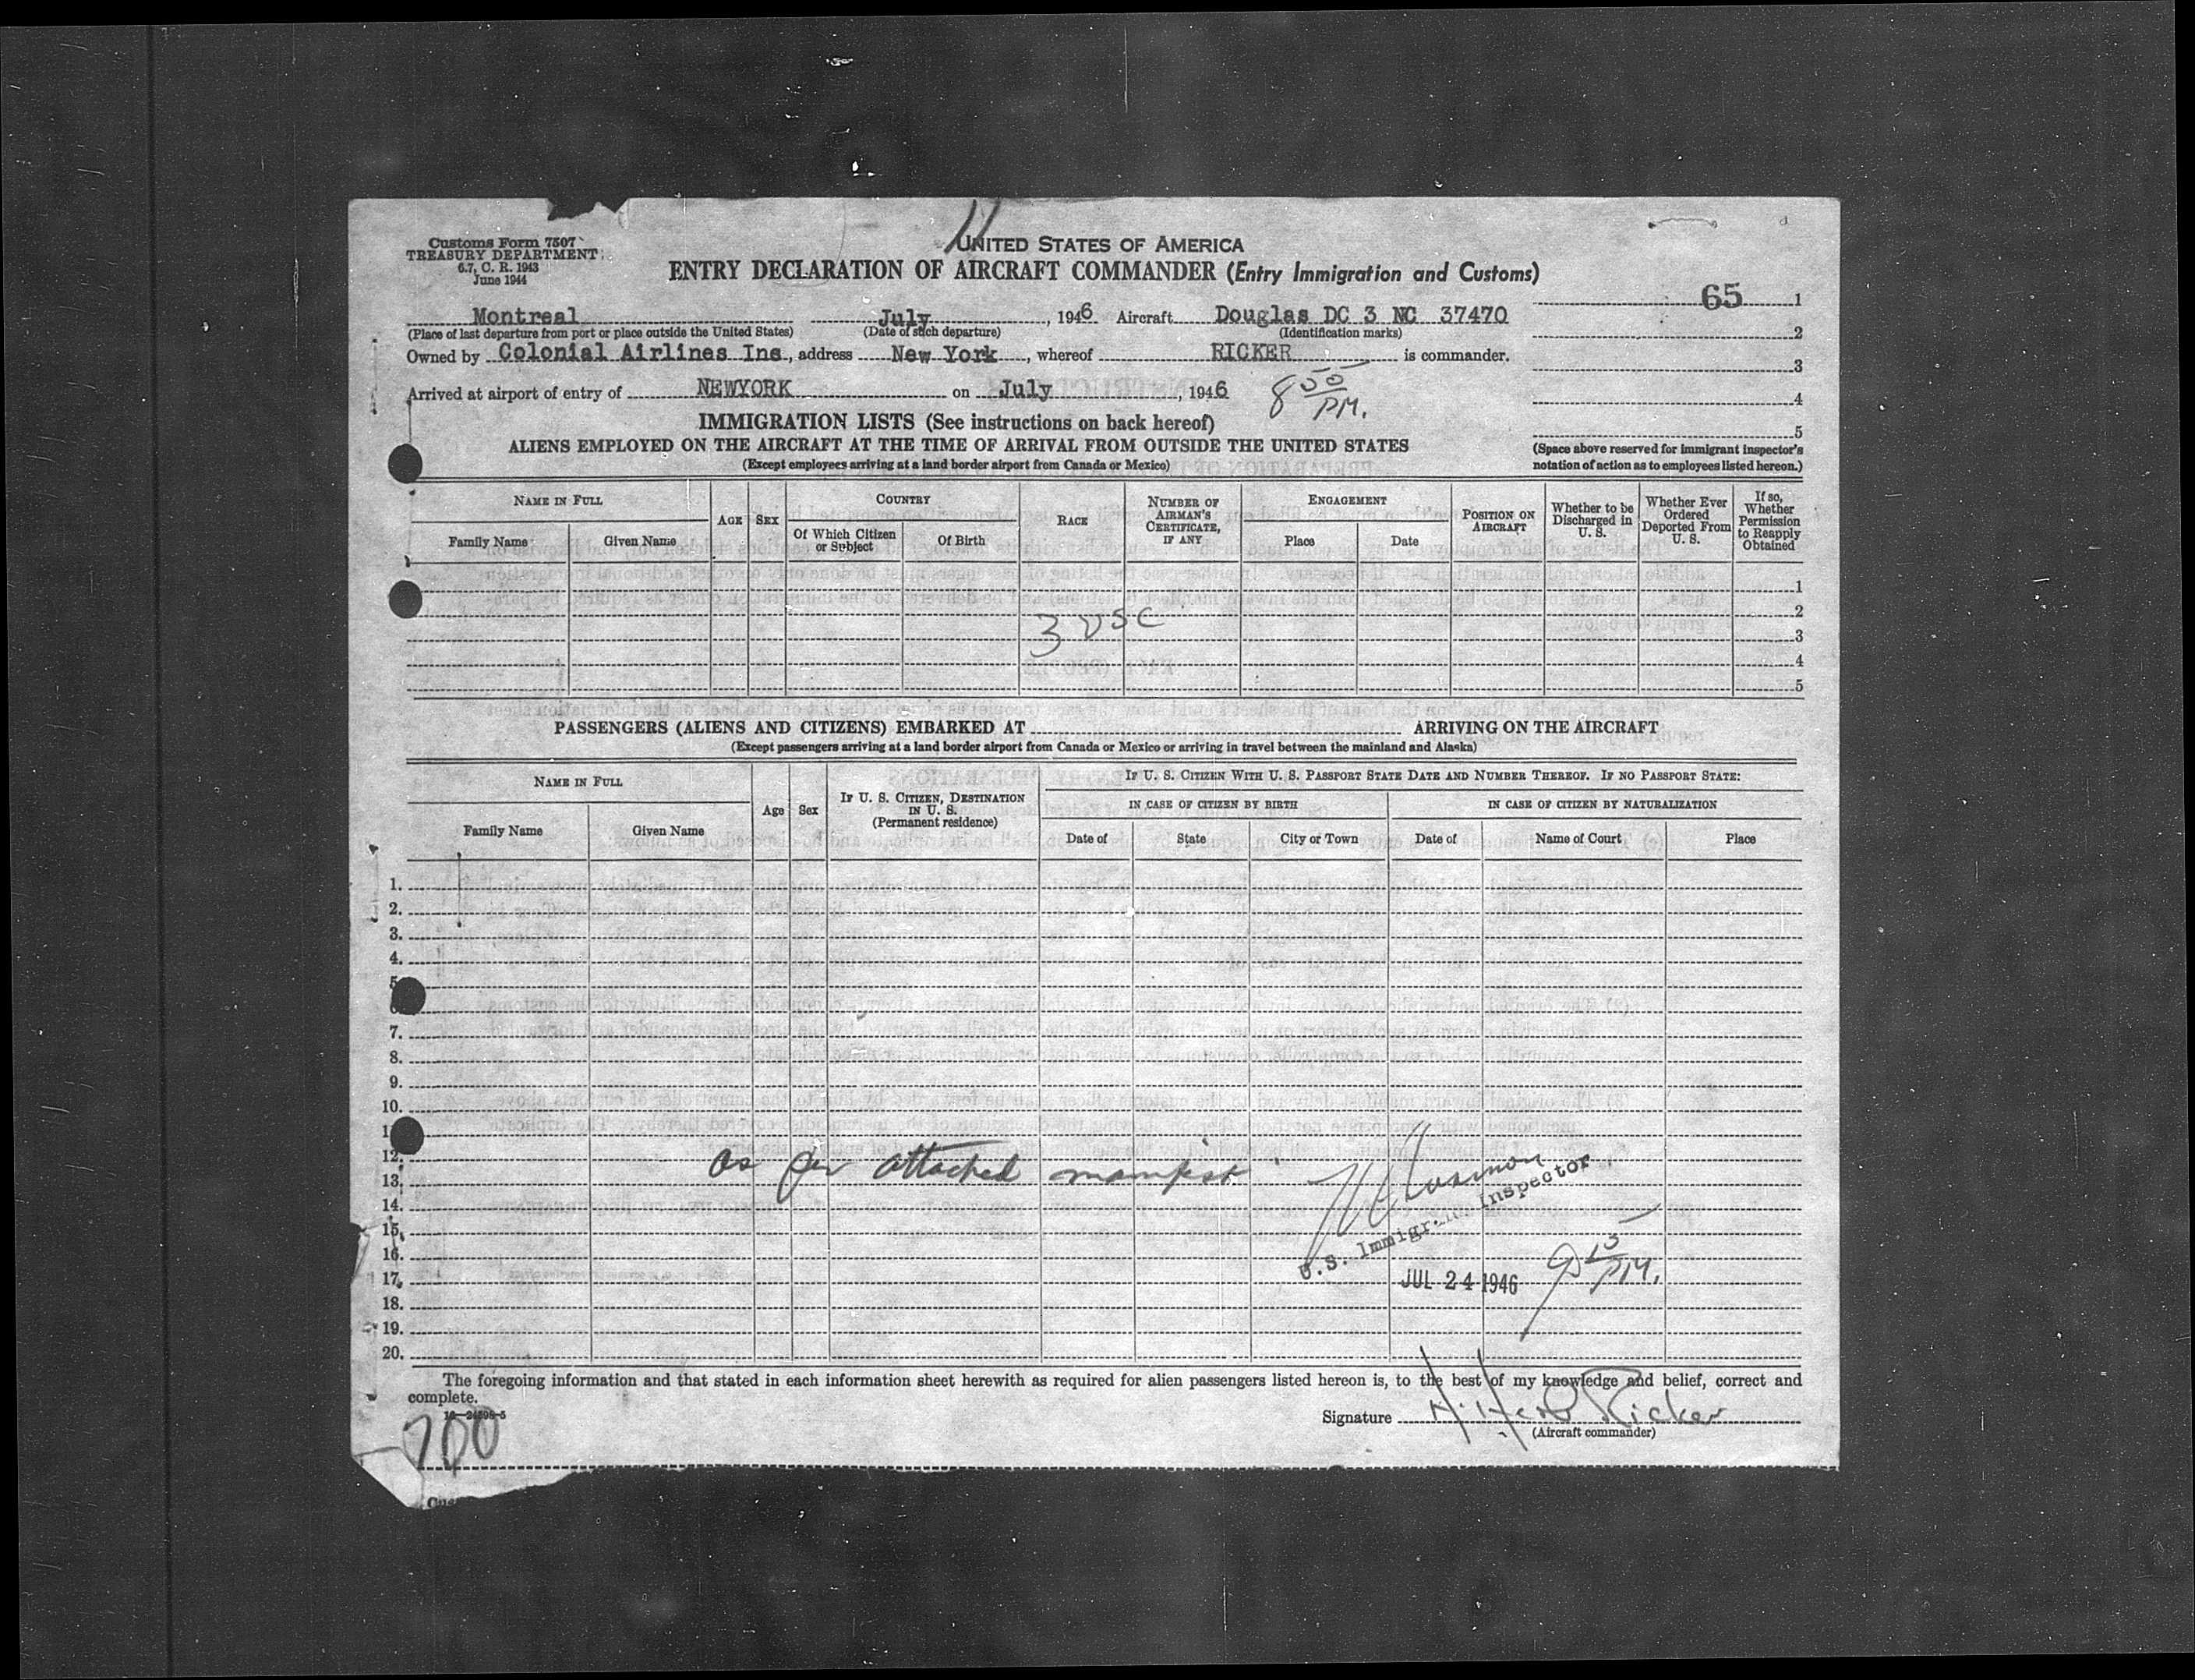 Customs Form 7507
TREASURY DEPARTMENT
6.7, C. R. 1943
June 1944
UNITED STATES OF AMERICA
ENTRY DECLARATION OF AIRCRAFT COMMANDER (Entry Immigration and Customs)
65 1
Montreal July, 1946 Aircraft Douglas DC 3 NC 37470
(Place of last departure from port or place outside the United States) (Date of such departure) (Identification marks)
2
Owned by Colonial Airlines Inc, address New York, whereof RICKER is commander.
3
Arrived at airport of entry of NEWYORK on July, 1946 8 50 PM.
4
IMMIGRATION LISTS (See instructions on back hereof)
5
ALIENS EMPLOYED ON THE AIRCRAFT AT THE TIME OF ARRIVAL FROM OUTSIDE THE UNITED STATES
(Except employees arriving at a land border airport from Canada or Mexico)
(Space above reserved for immigrant inspector's
notation of action as to employees listed hereon.)
NAME IN FULL
Family Name Given Name
AGE SEX
COUNTRY
Of Which Citizen or Subject Of Birth
RACE
NUMBER OF AIRMAN'S CERTIFICATE, IF ANY
ENGAGEMENT
Place Date
POSITION ON AIRCRAFT
Whether to be Discharged in U. S.
Whether Ever Ordered Deported From U. S.
If so, Whether Permission to Reapply Obtained
1
2
3 USC
3
4
5
PASSENGERS (ALIENS AND CITIZENS) EMBARKED AT ARRIVING ON THE AIRCRAFT
(Except passengers arriving at a land border airport from Canada or Mexico or arriving in travel between the mainland and Alaska)
NAME IN FULL
Family Name Given Name
Age Sex
IF U. S. CITIZEN, DESTINATION IN U. S.
(Permanent residence)
IF U. S. CITIZEN WITH U. S. PASSPORT STATE DATE AND NUMBER THEREOF. IF NO PASSPORT STATE:
IN CASE OF CITIZEN BY BIRTH IN CASE OF CITIZEN BY NATURALIZATION
Date of State City or Town Date of Name of Court Place
1.
2.
3.
4.
5
7.
8.
9.
10.
1
12.
as per attached manifest
13.
14.
U.S. Immigr Inspector
15.
16.
17.
JUL 24 1946 9 15 PM.
18.
19.
20.
The foregoing information and that stated in each information sheet herewith as required for alien passengers listed hereon is, to the best of my knowledge and belief, correct and
complete.
Signature Ricker
(Aircraft commander)
700